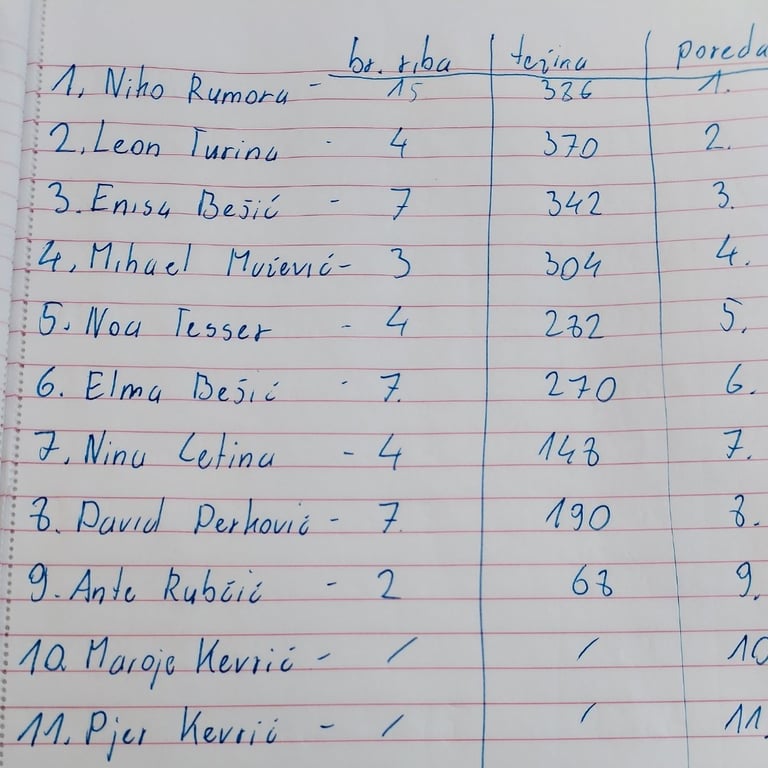 br. riba težina poreda
1. Niko Rumora - 15 386 1.
2. Leon Turina - 4 370 2.
3. Enisa Bešić - 7 342 3.
4. Mihael Mućević - 3 304 4.
5. Noa Tesser - 4 282 5.
6. Elma Bešić - 7 270 6.
7. Nina Letina - 4 148 7.
8. David Perković - 7 190 8.
9. Ante Rubčić - 2 68 9.
10. Maroje Kevrić - / / 10
11. Pjer Kevrić - / / 11.